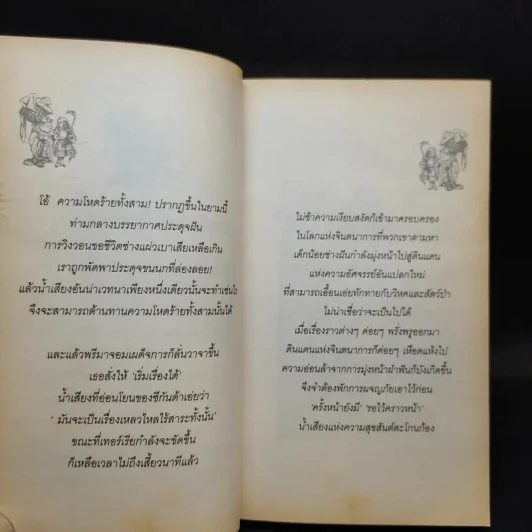 โอ้ ความโหดร้ายทั้งสาม! ปรากฏขึ้นในยามนี้
ท่ามกลางบรรยากาศประดุจฝัน
การวิงวอนขอชีวิตช่างแผ่วเบาเสียเหลือเกิน
เราถูกพัดพาประดุจขนนกที่ล่องลอย!
แล้วน้ำเสียงอันน่าเวทนาเพียงหนึ่งเดียวนั้นจะทำเช่นไร
จึงจะสามารถต้านทานความโหดร้ายทั้งสามนั้นได้
และแล้วพรีมาจอมเผด็จการก็ลั่นวาจาขึ้น
เธอสั่งให้ 'เริ่มเรื่องได้'
น้ำเสียงที่อ่อนโยนของซีกันด้าเอ่ยว่า
' มันจะเป็นเรื่องเหลวไหลไร้สาระทั้งนั้น'
ขณะที่เทอร์เรียกำลังจะขัดขึ้น
ก็เหลือเวลาไม่ถึงเสี้ยวนาทีแล้ว
ไม่ช้าความเงียบสงัดก็เข้ามาครอบครอง
ในโลกแห่งจินตนาการที่พวกเขาตามหา
เด็กน้อยช่างฝันกำลังมุ่งหน้าไปสู่ดินแดน
แห่งความอัศจรรย์อันแปลกใหม่
ที่สามารถเอื้อนเอ่ยทักทายกับวิหคและสัตว์ป่า
ไม่น่าเชื่อว่าจะเป็นไปได้
เมื่อเรื่องราวต่างๆ ค่อยๆ พรั่งพรูออกมา
ดินแดนแห่งจินตนาการก็ค่อยๆ เหือดแห้งไป
ความอ่อนล้าจากการมุ่งหน้าฝ่าฟันก็บังเกิดขึ้น
จึงจำต้องพักการผจญภัยเอาไว้ก่อน
'ครั้งหน้ายังมี' 'รอไว้คราวหน้า'
น้ำเสียงแห่งความสุขสันต์ตะโกนก้อง